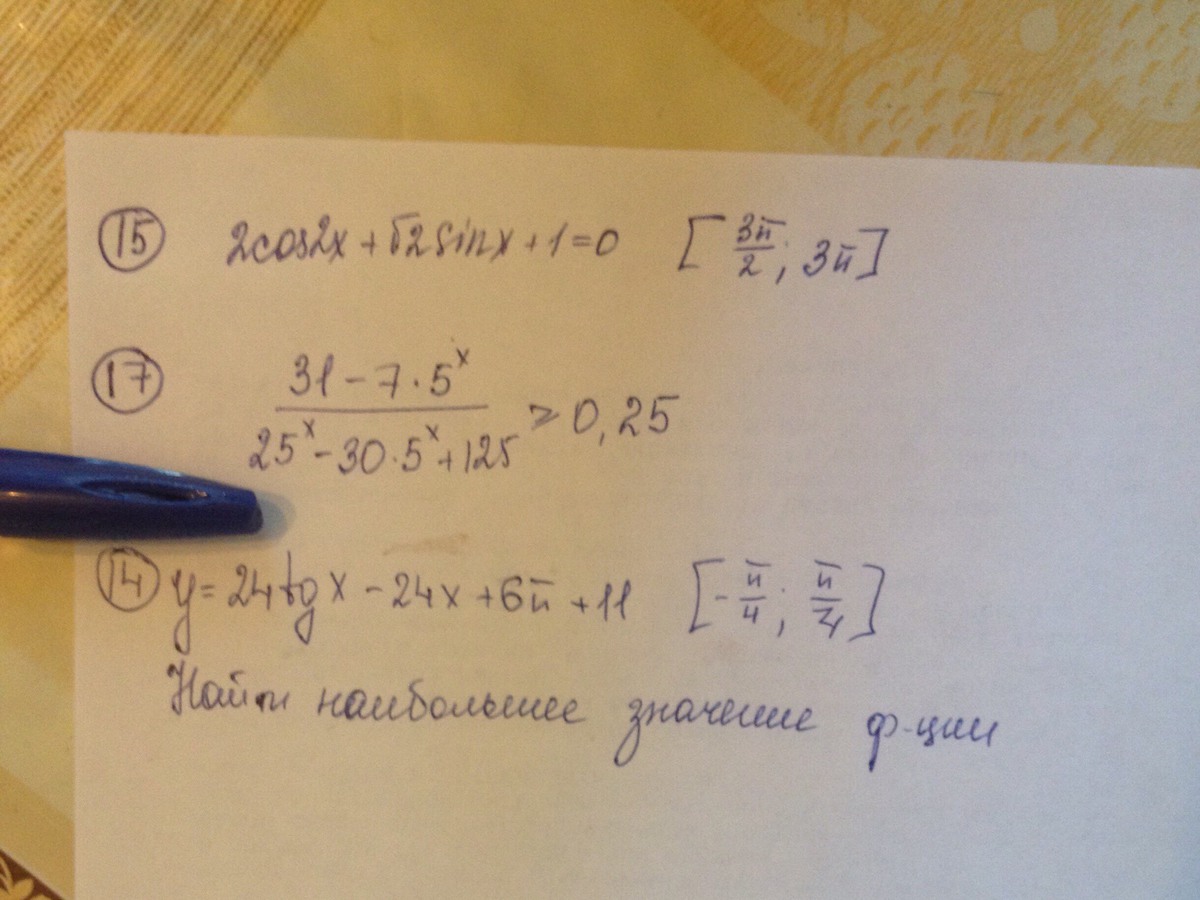 15 2cos2x + √2 sinx + 1 = 0 [3π/2; 3π]
17 (31 - 7·5^x)/(25^x - 30·5^x + 125) ≥ 0,25
14 y = 24tgx - 24x + 6π + 11 [-π/4; π/4]
Найти наибольшее значение ф-ции